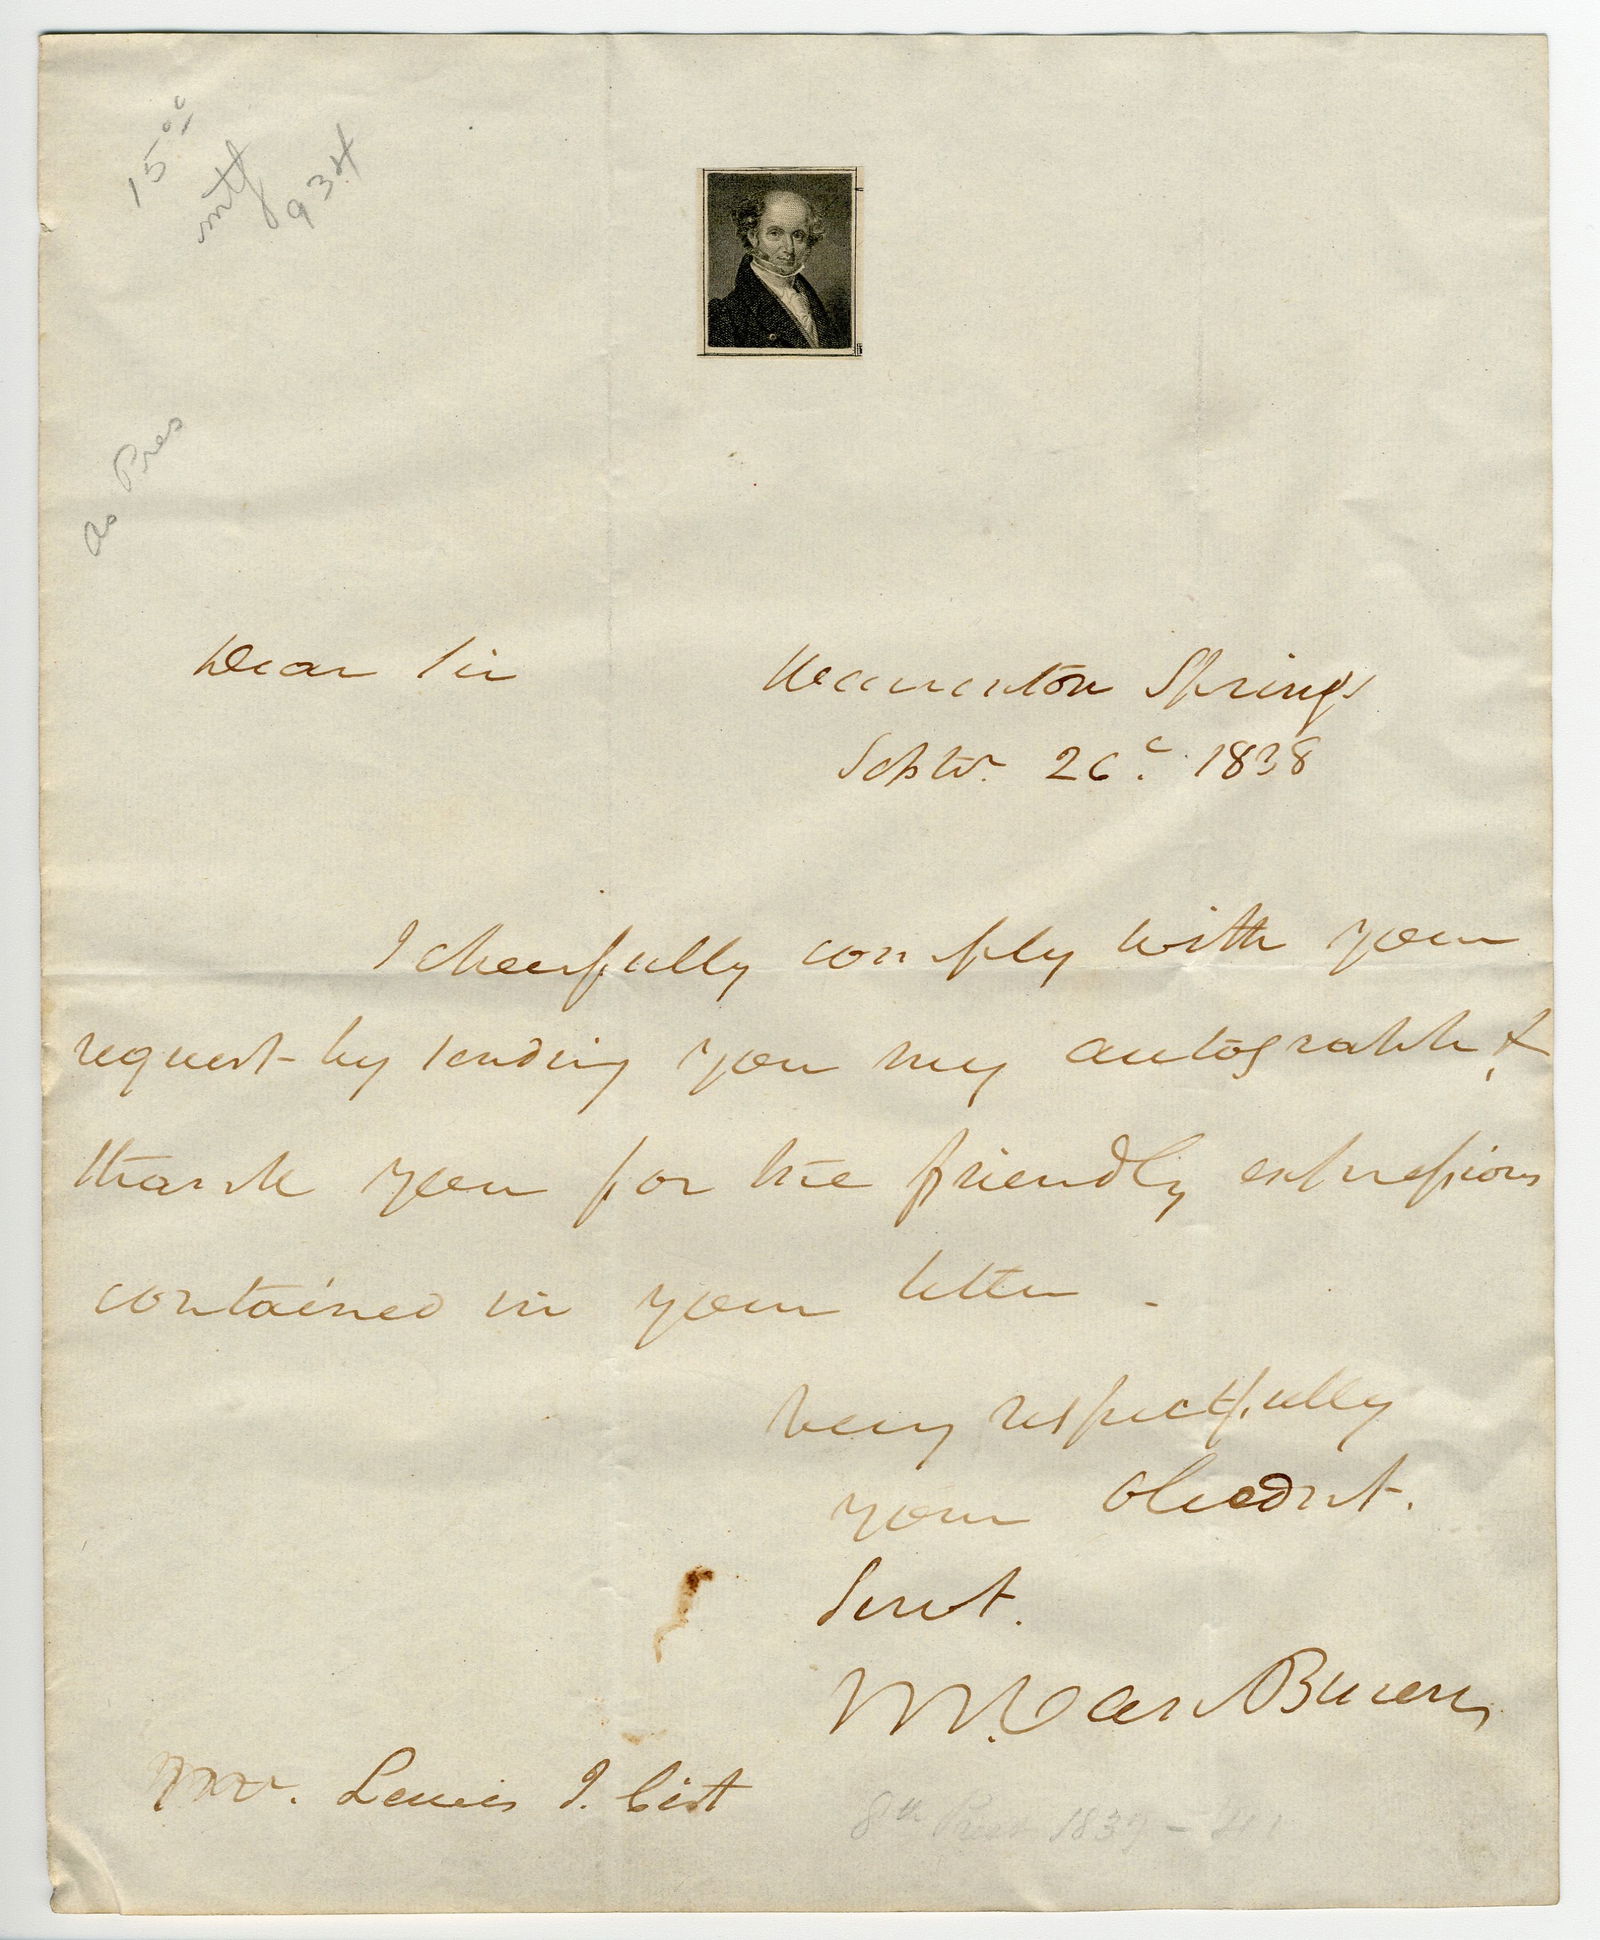 15 00
mtf
934
as Pres
Dear Sir
Warrenton Springs
Septr. 26. 1838
I cheerfully comply with your
request by sending you my autograph, &
thank you for the friendly expressions
contained in your letter -
very respectfully
your obednt.
Servt.
M. Van Buren
Mr. Lewis J. Cist
8th Pres 1837 - 41